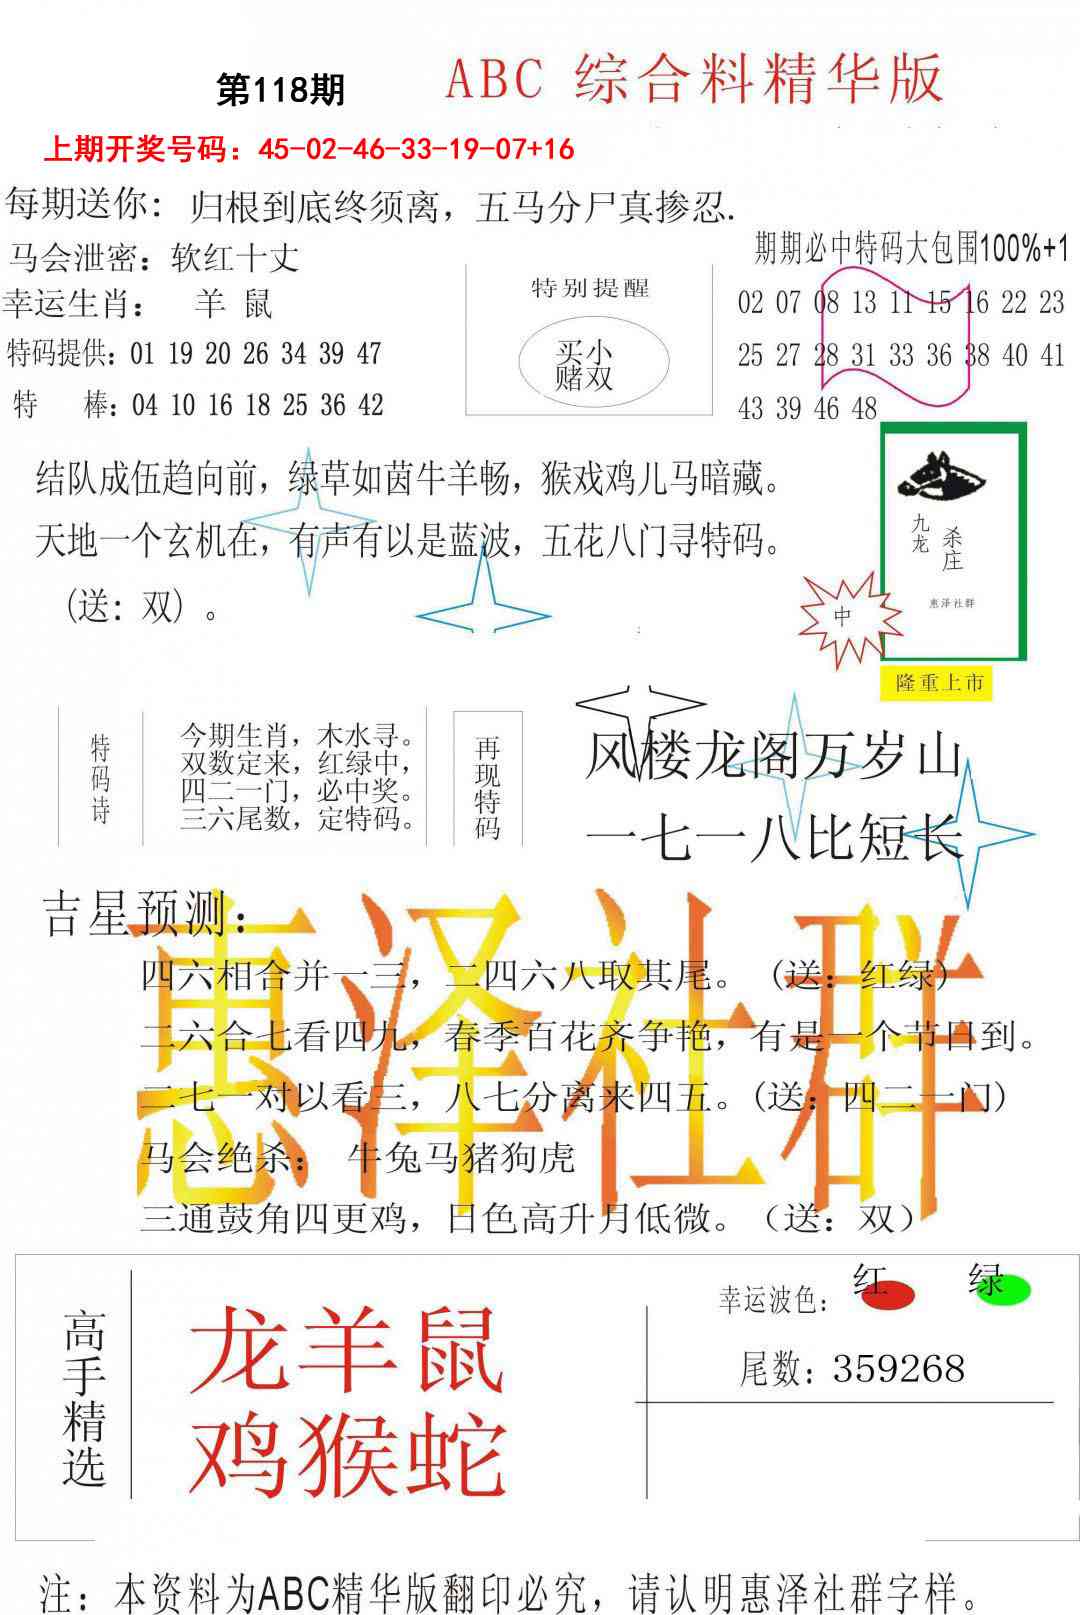 第118期
ABC 综合料精华版
上期开奖号码：45-02-46-33-19-07+16
每期送你：归根到底终须离，五马分尸真掺忍.
马会泄密：软红十丈
幸运生肖： 羊 鼠
特码提供：01 19 20 26 34 39 47
特 棒：04 10 16 18 25 36 42
特别提醒
买小
赌双
期期必中特码大包围100%+1
02 07 08 13 11 15 16 22 23
25 27 28 31 33 36 38 40 41
43 39 46 48
结队成伍趋向前，绿草如茵牛羊畅，猴戏鸡儿马暗藏。
天地一个玄机在，有声有以是蓝波，五花八门寻特码。
(送：双）。
九龙
杀庄
惠泽社群
中
隆重上市
特码诗
今期生肖，木水寻。
双数定来，红绿中，
四二一门，必中奖。
三六尾数，定特码。
再现特码
风楼龙阁万岁山
一七一八比短长
吉星预测：
惠泽社群
四六相合并一三，二四六八取其尾。（送：红绿）
二六合七看四九，春季百花齐争艳，有是一个节日到。
二七一对以看三，八七分离来四五。(送：四二一门)
马会绝杀： 牛兔马猪狗虎
三通鼓角四更鸡，日色高升月低微。（送：双）
高手精选
龙羊鼠
鸡猴蛇
幸运波色：红 绿
尾数：359268
注：本资料为ABC精华版翻印必究，请认明惠泽社群字样。